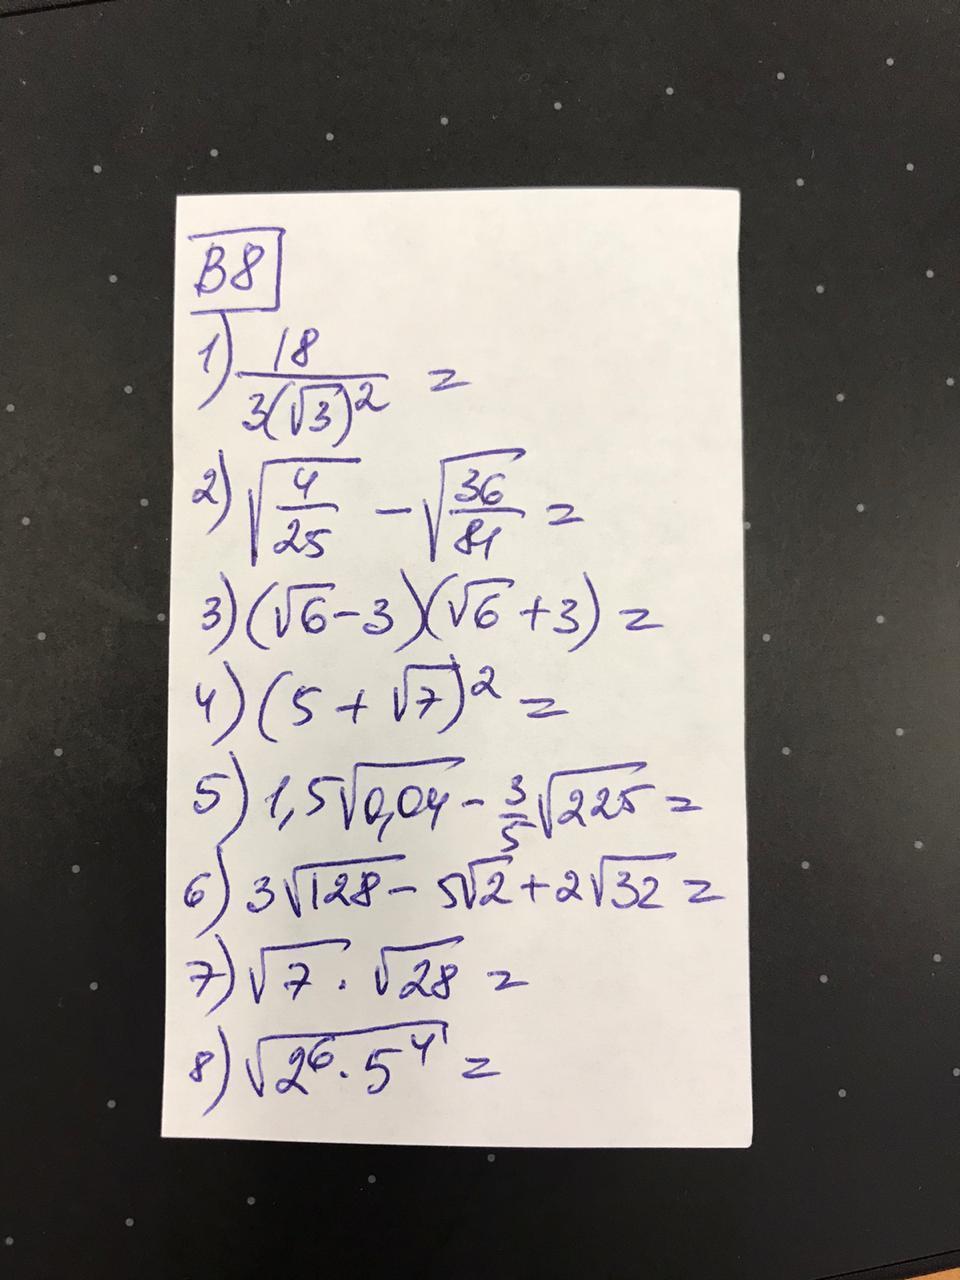 В8
1) 18/(3(√3)²) =
2) √(4/25) - √(36/81) =
3) (√6 - 3)(√6 + 3) =
4) (5 + √7)² =
5) 1,5√0,04 - 3/5√225 =
6) 3√128 - 5√2 + 2√32 =
7) √7 · √28 =
8) √(2⁶ · 5⁴) =